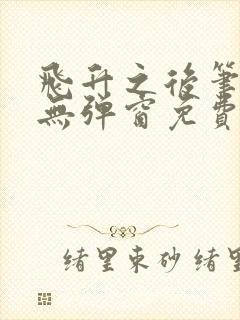 飛升之後筆
無彈窗免費
緒里束砂 緒里